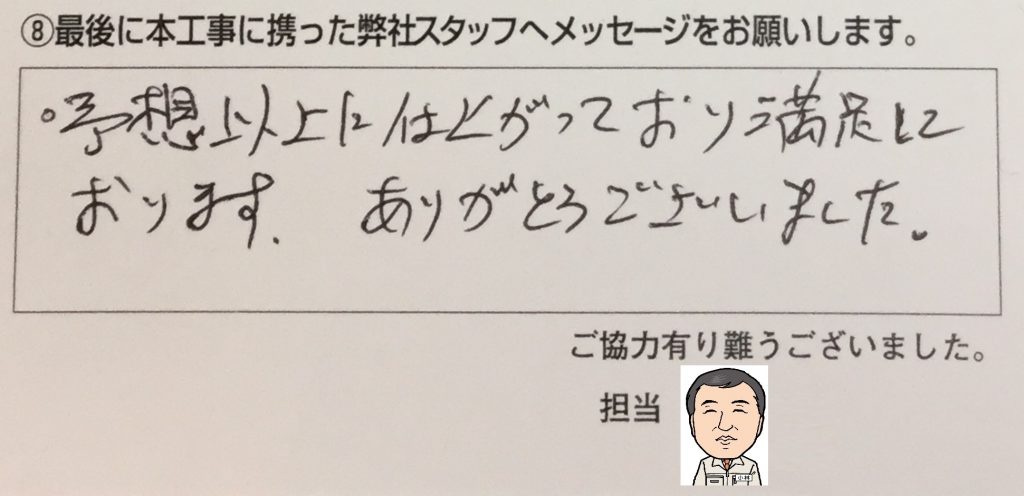 ⑧最後に本工事に携った弊社スタッフへメッセージをお願いします。
。予想以上に仕上がっており満足して
おります. ありがとうございました。
ご協力有り難うございました。
担当
小林